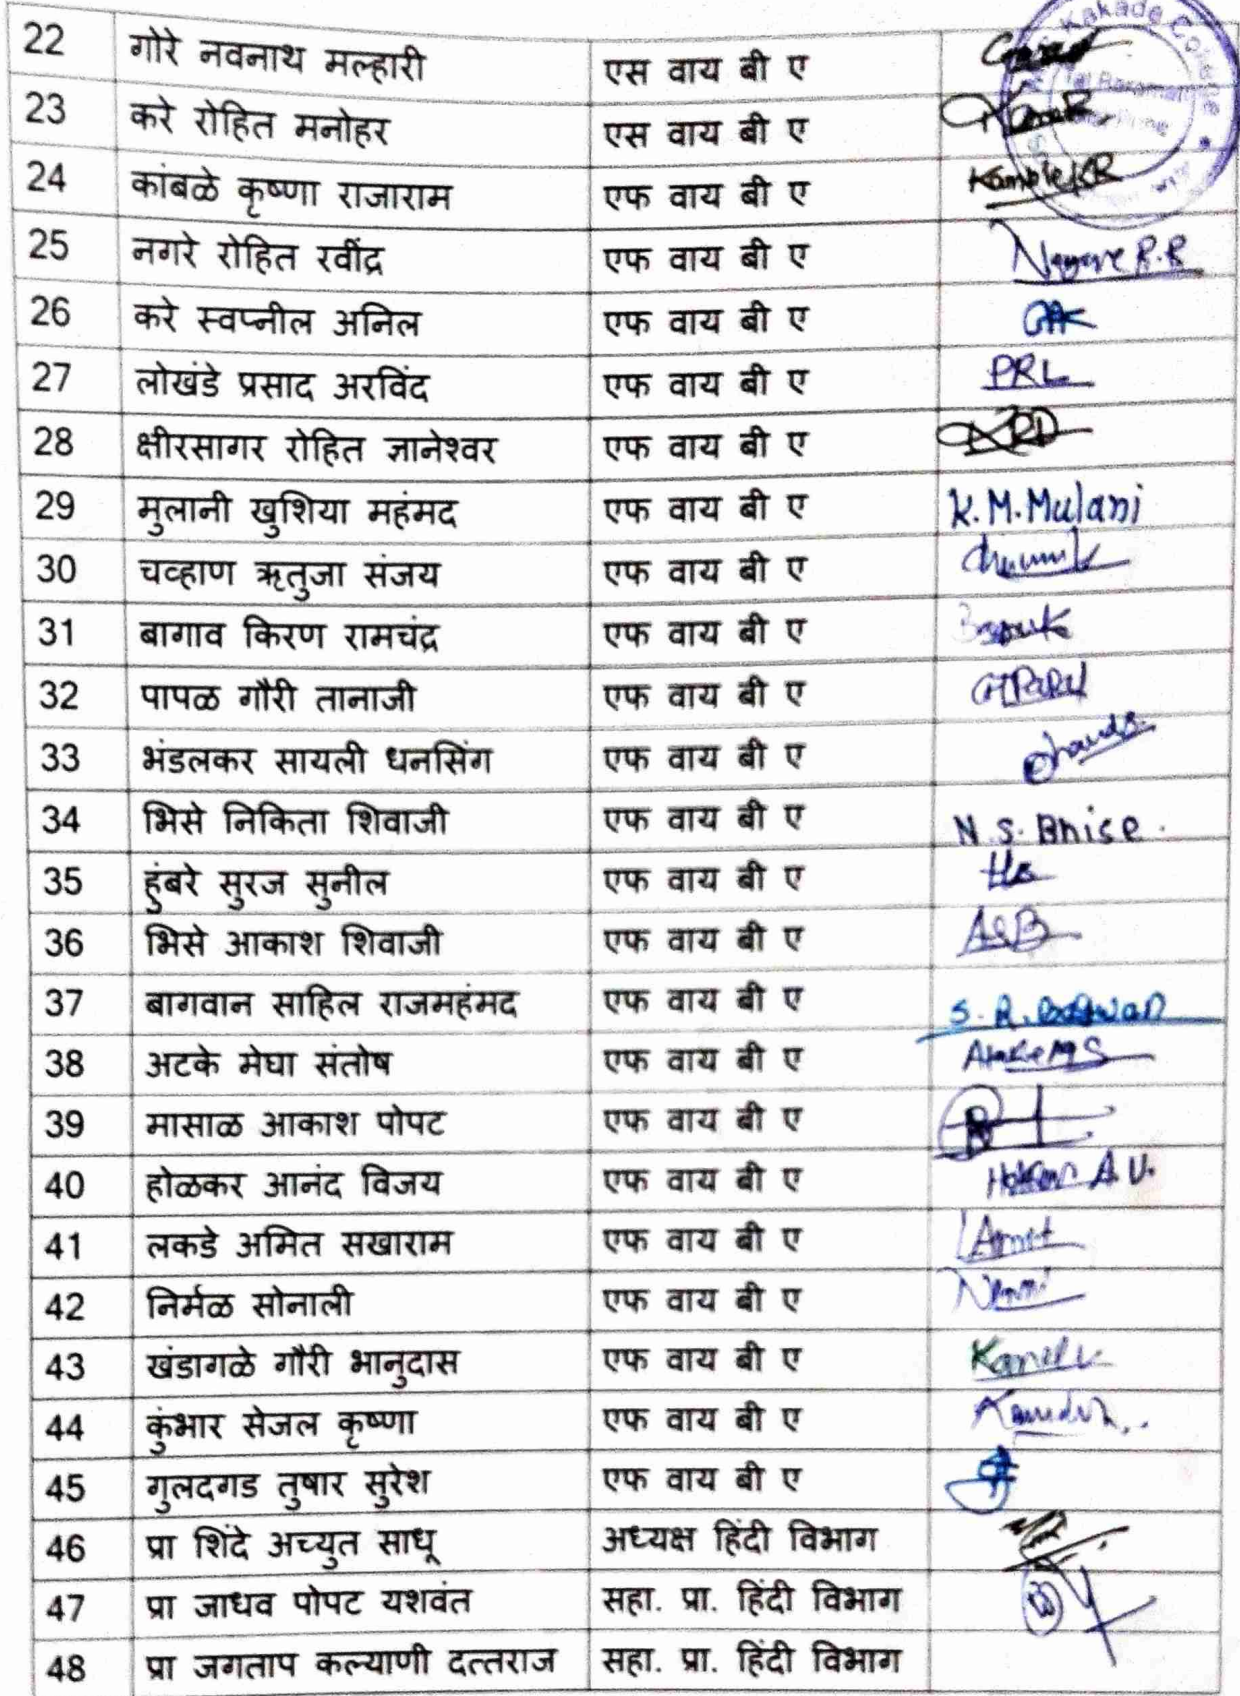 22 गोरे नवनाथ मल्हारी एस वाय बी ए
23 करे रोहित मनोहर एस वाय बी ए
24 कांबळे कृष्णा राजाराम एफ वाय बी ए Kamble KR
25 नगरे रोहित रवींद्र एफ वाय बी ए Nagare R.R
26 करे स्वप्नील अनिल एफ वाय बी ए
27 लोखंडे प्रसाद अरविंद एफ वाय बी ए PRL
28 क्षीरसागर रोहित ज्ञानेश्वर एफ वाय बी ए KRD
29 मुलानी खुशिया महंमद एफ वाय बी ए K.M.Mulani
30 चव्हाण ऋतुजा संजय एफ वाय बी ए
31 बागाव किरण रामचंद्र एफ वाय बी ए
32 पापळ गौरी तानाजी एफ वाय बी ए
33 भंडलकर सायली धनसिंग एफ वाय बी ए
34 भिसे निकिता शिवाजी एफ वाय बी ए N.S.Bhise.
35 हुंबरे सुरज सुनील एफ वाय बी ए
36 भिसे आकाश शिवाजी एफ वाय बी ए ASB
37 बागवान साहिल राजमहंमद एफ वाय बी ए S.R.Bagwan
38 अटके मेघा संतोष एफ वाय बी ए Atake M S
39 मासाळ आकाश पोपट एफ वाय बी ए
40 होळकर आनंद विजय एफ वाय बी ए Holkar A.V.
41 लकडे अमित सखाराम एफ वाय बी ए LAmit
42 निर्मळ सोनाली एफ वाय बी ए
43 खंडागळे गौरी भानुदास एफ वाय बी ए
44 कुंभार सेजल कृष्णा एफ वाय बी ए
45 गुलदगड तुषार सुरेश एफ वाय बी ए
46 प्रा शिंदे अच्युत साधू अध्यक्ष हिंदी विभाग
47 प्रा जाधव पोपट यशवंत सहा. प्रा. हिंदी विभाग
48 प्रा जगताप कल्याणी दत्तराज सहा. प्रा. हिंदी विभाग